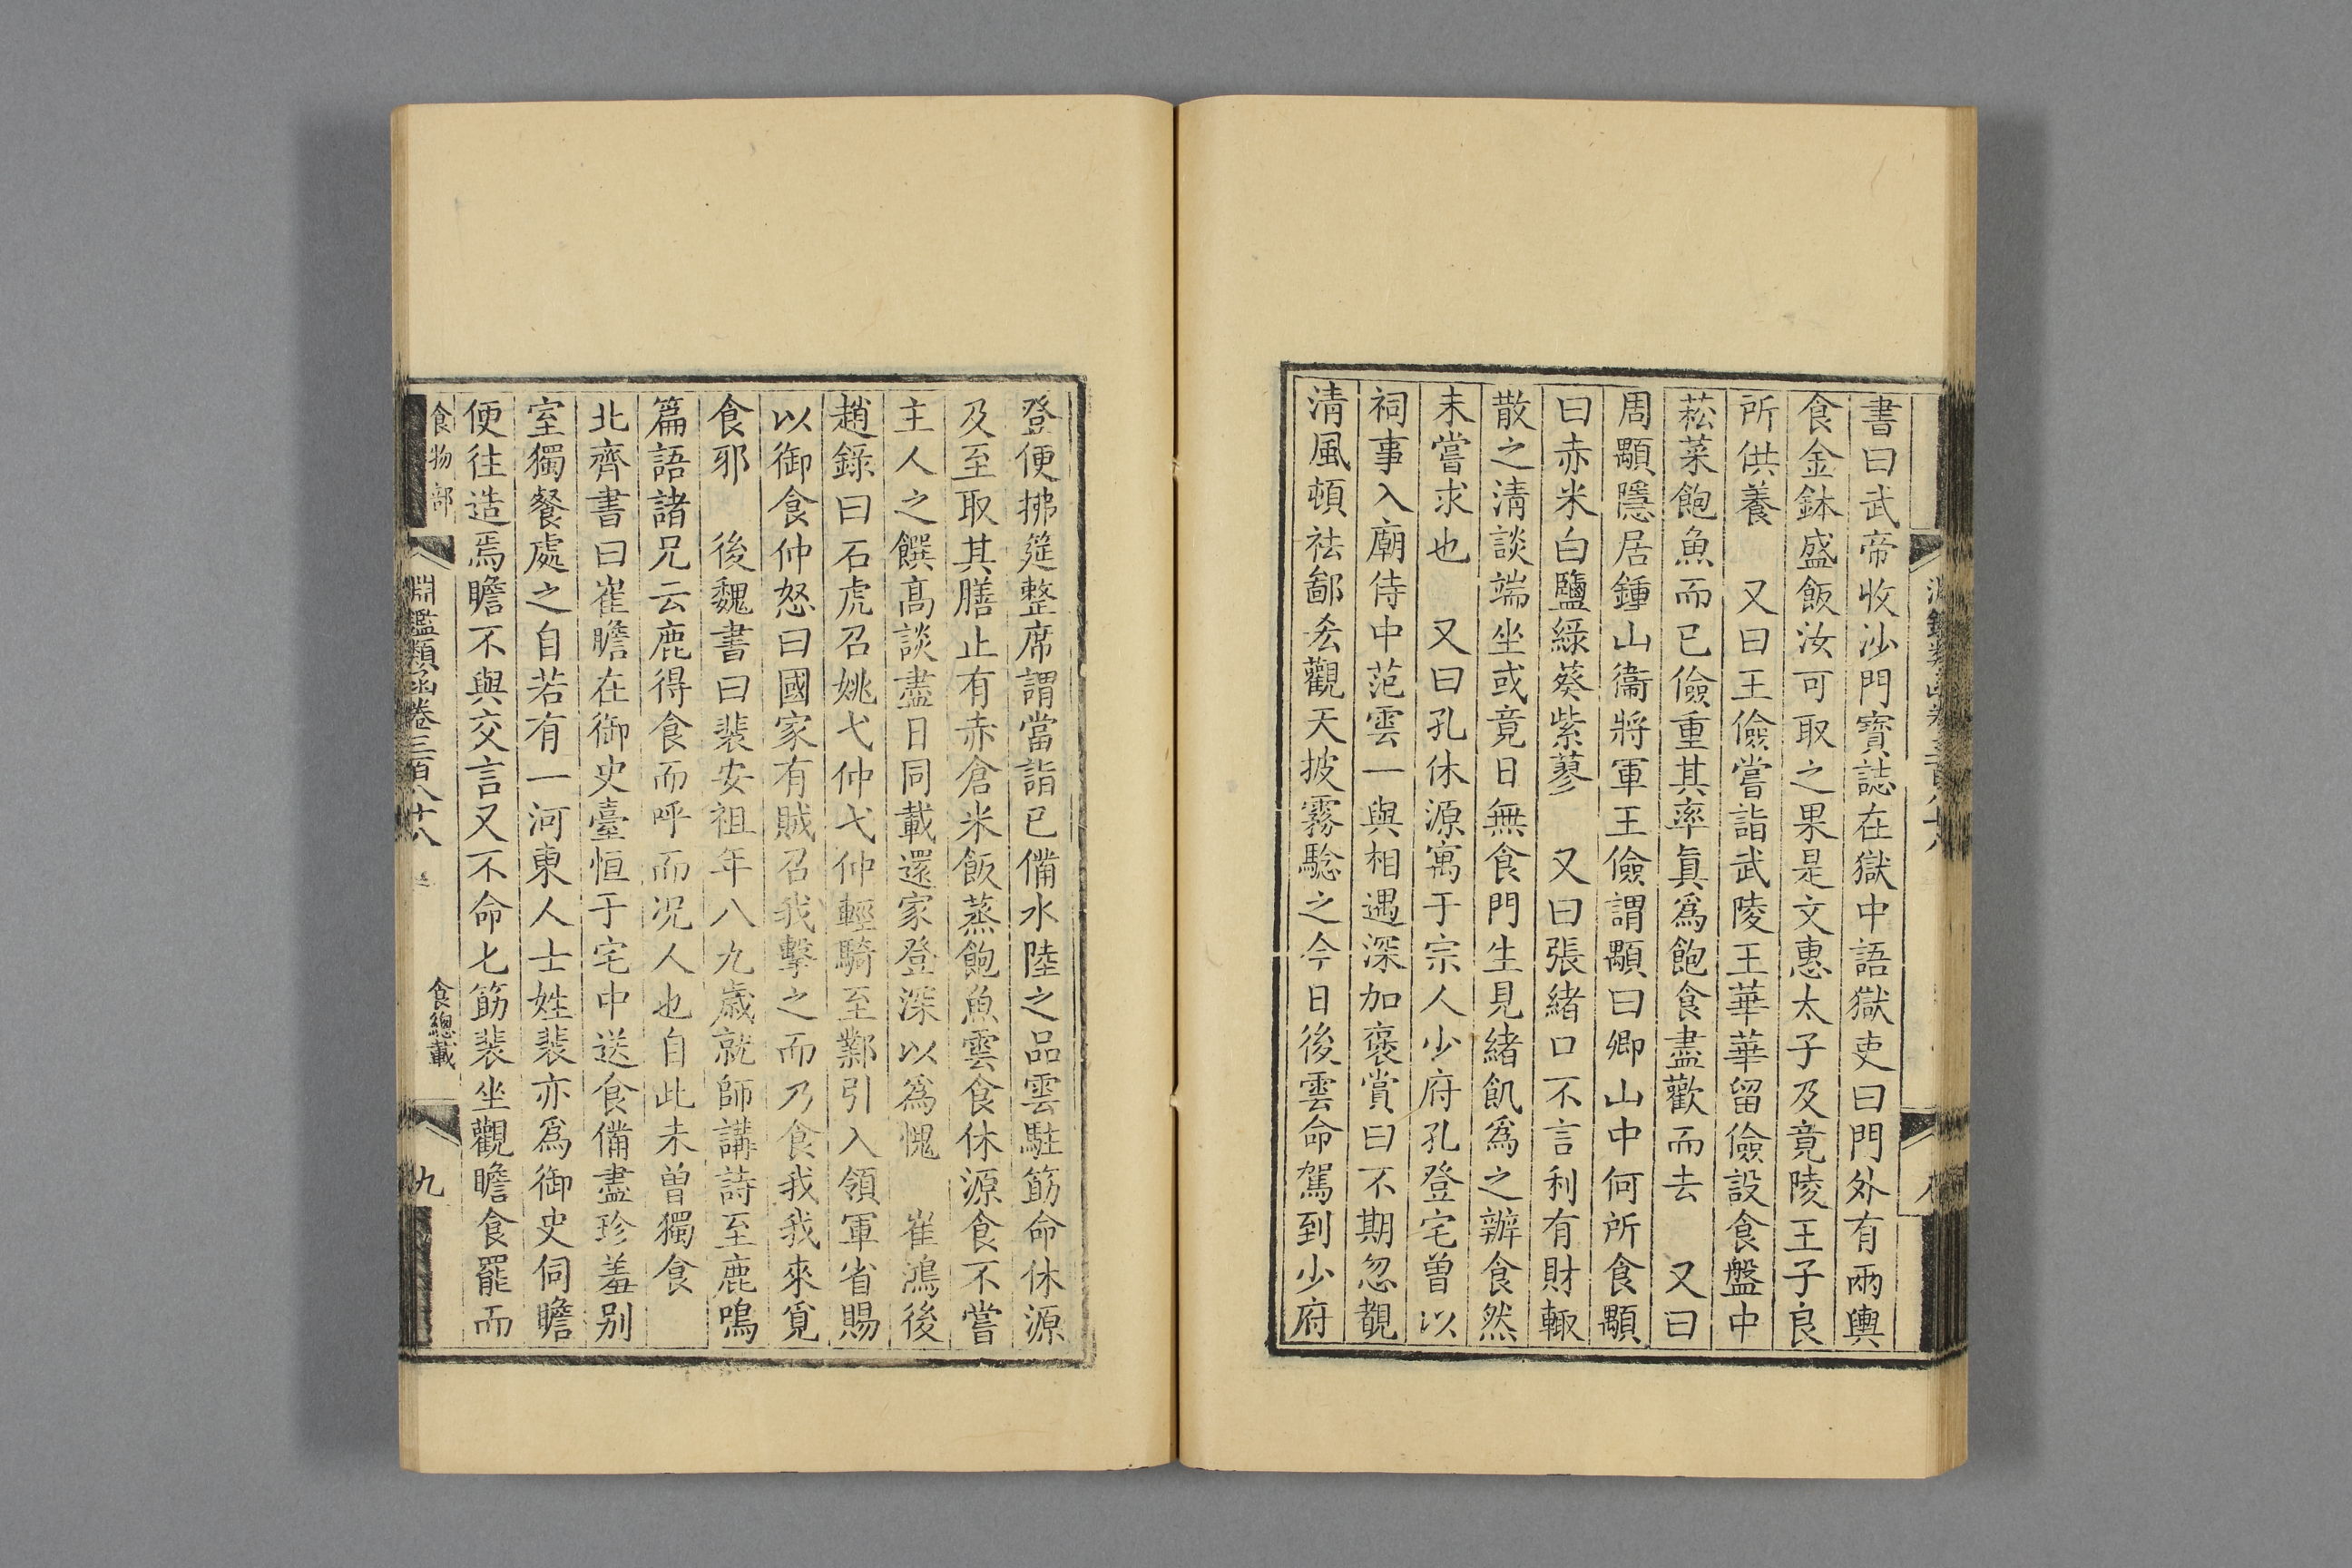 書曰武帝收沙門寳誌在獄中語獄吏曰門外有兩輿
食金鉢盛飯汝可取之果是文惠太子及竟陵王子良
所供養　又曰王儉嘗詣武陵王華華留儉設食盤中
菘菜飽魚而已儉重其率眞爲飽食盡歡而去　又曰
周顒隱居鍾山衞將軍王儉謂顒曰卿山中何所食顒
曰赤米白鹽綠葵紫蓼　又曰張緒口不言利有財輙
散之淸談端坐或竟日無食門生見緒飢爲之辦食然
未嘗求也　又曰孔休源寓于宗人少府孔登宅曾以
祠事入廟侍中范雲一與相遇深加褒賞曰不期忽覩
淸風頓祛鄙吝觀天披霧驗之今日後雲命駕到少府
登便拂筵整席謂當詣已備水陸之品雲駐筯命休源
及至取其膳止有赤倉米飯蒸鮑魚雲食休源食不嘗
主人之饌高談盡日同載還家登深以爲愧　崔鴻後
趙錄曰石虎召姚弋仲弋仲輕騎至鄴引入領軍省賜
以御食仲怒曰國家有賊召我擊之而乃食我我來覓
食邪　後魏書曰裴安祖年八九歲就師講詩至鹿鳴
篇語諸兄云鹿得食而呼而况人也自此未曾獨食
北齊書曰崔瞻在御史臺恒于宅中送食備盡珍羞别
室獨餐處之自若有一河東人士姓裴亦爲御史伺瞻
便往造焉瞻不與交言又不命匕筯裴坐觀瞻食罷而
食物部
淵鑑類函卷三百八十八
食總載
九